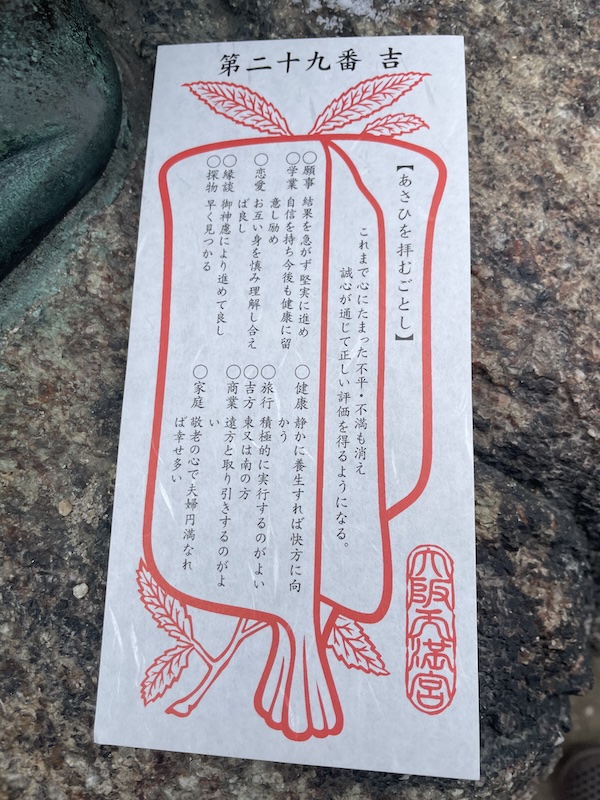 第二十九番 吉
【あさひを拝むごとし】
これまで心にたまった不平・不満も消え
誠心が通じて正しい評価を得るようになる。
○願事 結果を急がず堅実に進め
○学業 自信を持ち今後も健康に留
意し励め
○恋愛 お互い身を慎み理解し合え
ば良し
○縁談 御神慮により進めて良し
○探物 早く見つかる
○健康 静かに養生すれば快方に向
かう
○旅行 積極的に実行するのがよい
○吉方 東又は南の方
○商業 遠方と取り引きするのがよ
い
○家庭 敬老の心で夫婦円満なれ
ば幸せ多い
大阪天満宮